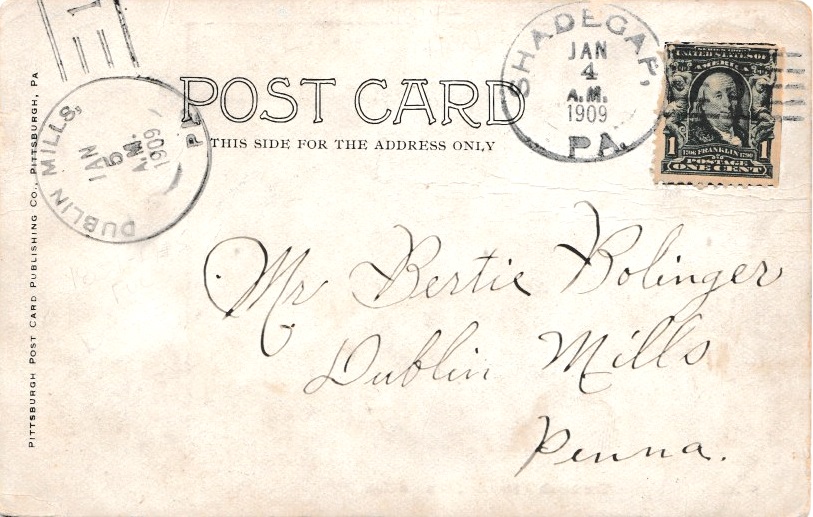 PITTSBURGH POST CARD PUBLISHING CO., PITTSBURGH, PA
DUBLIN MILLS,
JAN
5
A.M.
1909
POST CARD
THIS SIDE FOR THE ADDRESS ONLY
SHADEGAP,
JAN
4
A.M.
1909
PA.
UNITED STATES OF
AMERICA
1 1
1706 FRANKLIN 1790
POSTAGE
ONE CENT
Mr Bertie Bolinger
Dublin Mills
Penna.